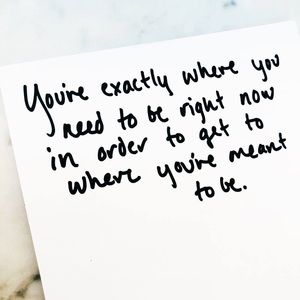 You're exactly where you
need to be right now
in order to get to
where you're meant
to be.